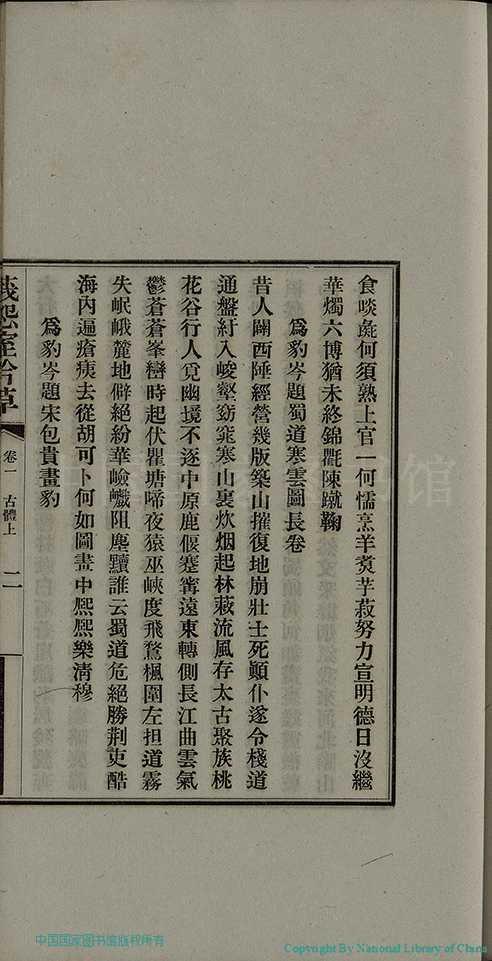 食啖彘何須熟上官一何懦烹羊煑芋菽努力宣明德日沒繼
華燭六博猶未終錦氍陳蹴鞠
爲豹岑題蜀道寒雲圖長卷
昔人闢西陲經營幾版築山摧復地崩壯士死顚仆遂令棧道
通盤紆入峻壑窈窕寒山裏炊烟起林薮流風存太古聚族桃
花谷行人覓幽境不逐中原鹿偃蹇甯遠東轉側長江曲雲氣
鬱蒼蒼峯巒時起伏瞿塘啼夜猿巫峽度飛鶩楓圍左担道霧
失岷峨麓地僻絕紛華嶮巇阻塵黷誰云蜀道危絕勝荆吏酷
海內遍瘡痍去從胡可卜何如圖畫中熙熙樂清穆
爲豹岑題宋包貴畫豹
室吟草
卷一
古體上
二
中国国家图书馆版权所有
Copyright By National Library of China